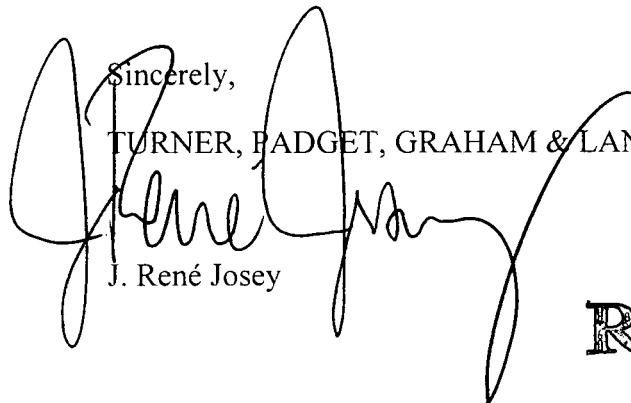 Sincerely,
TURNER, PADGET, GRAHAM & LAN
J René Josey
J. René Josey
R